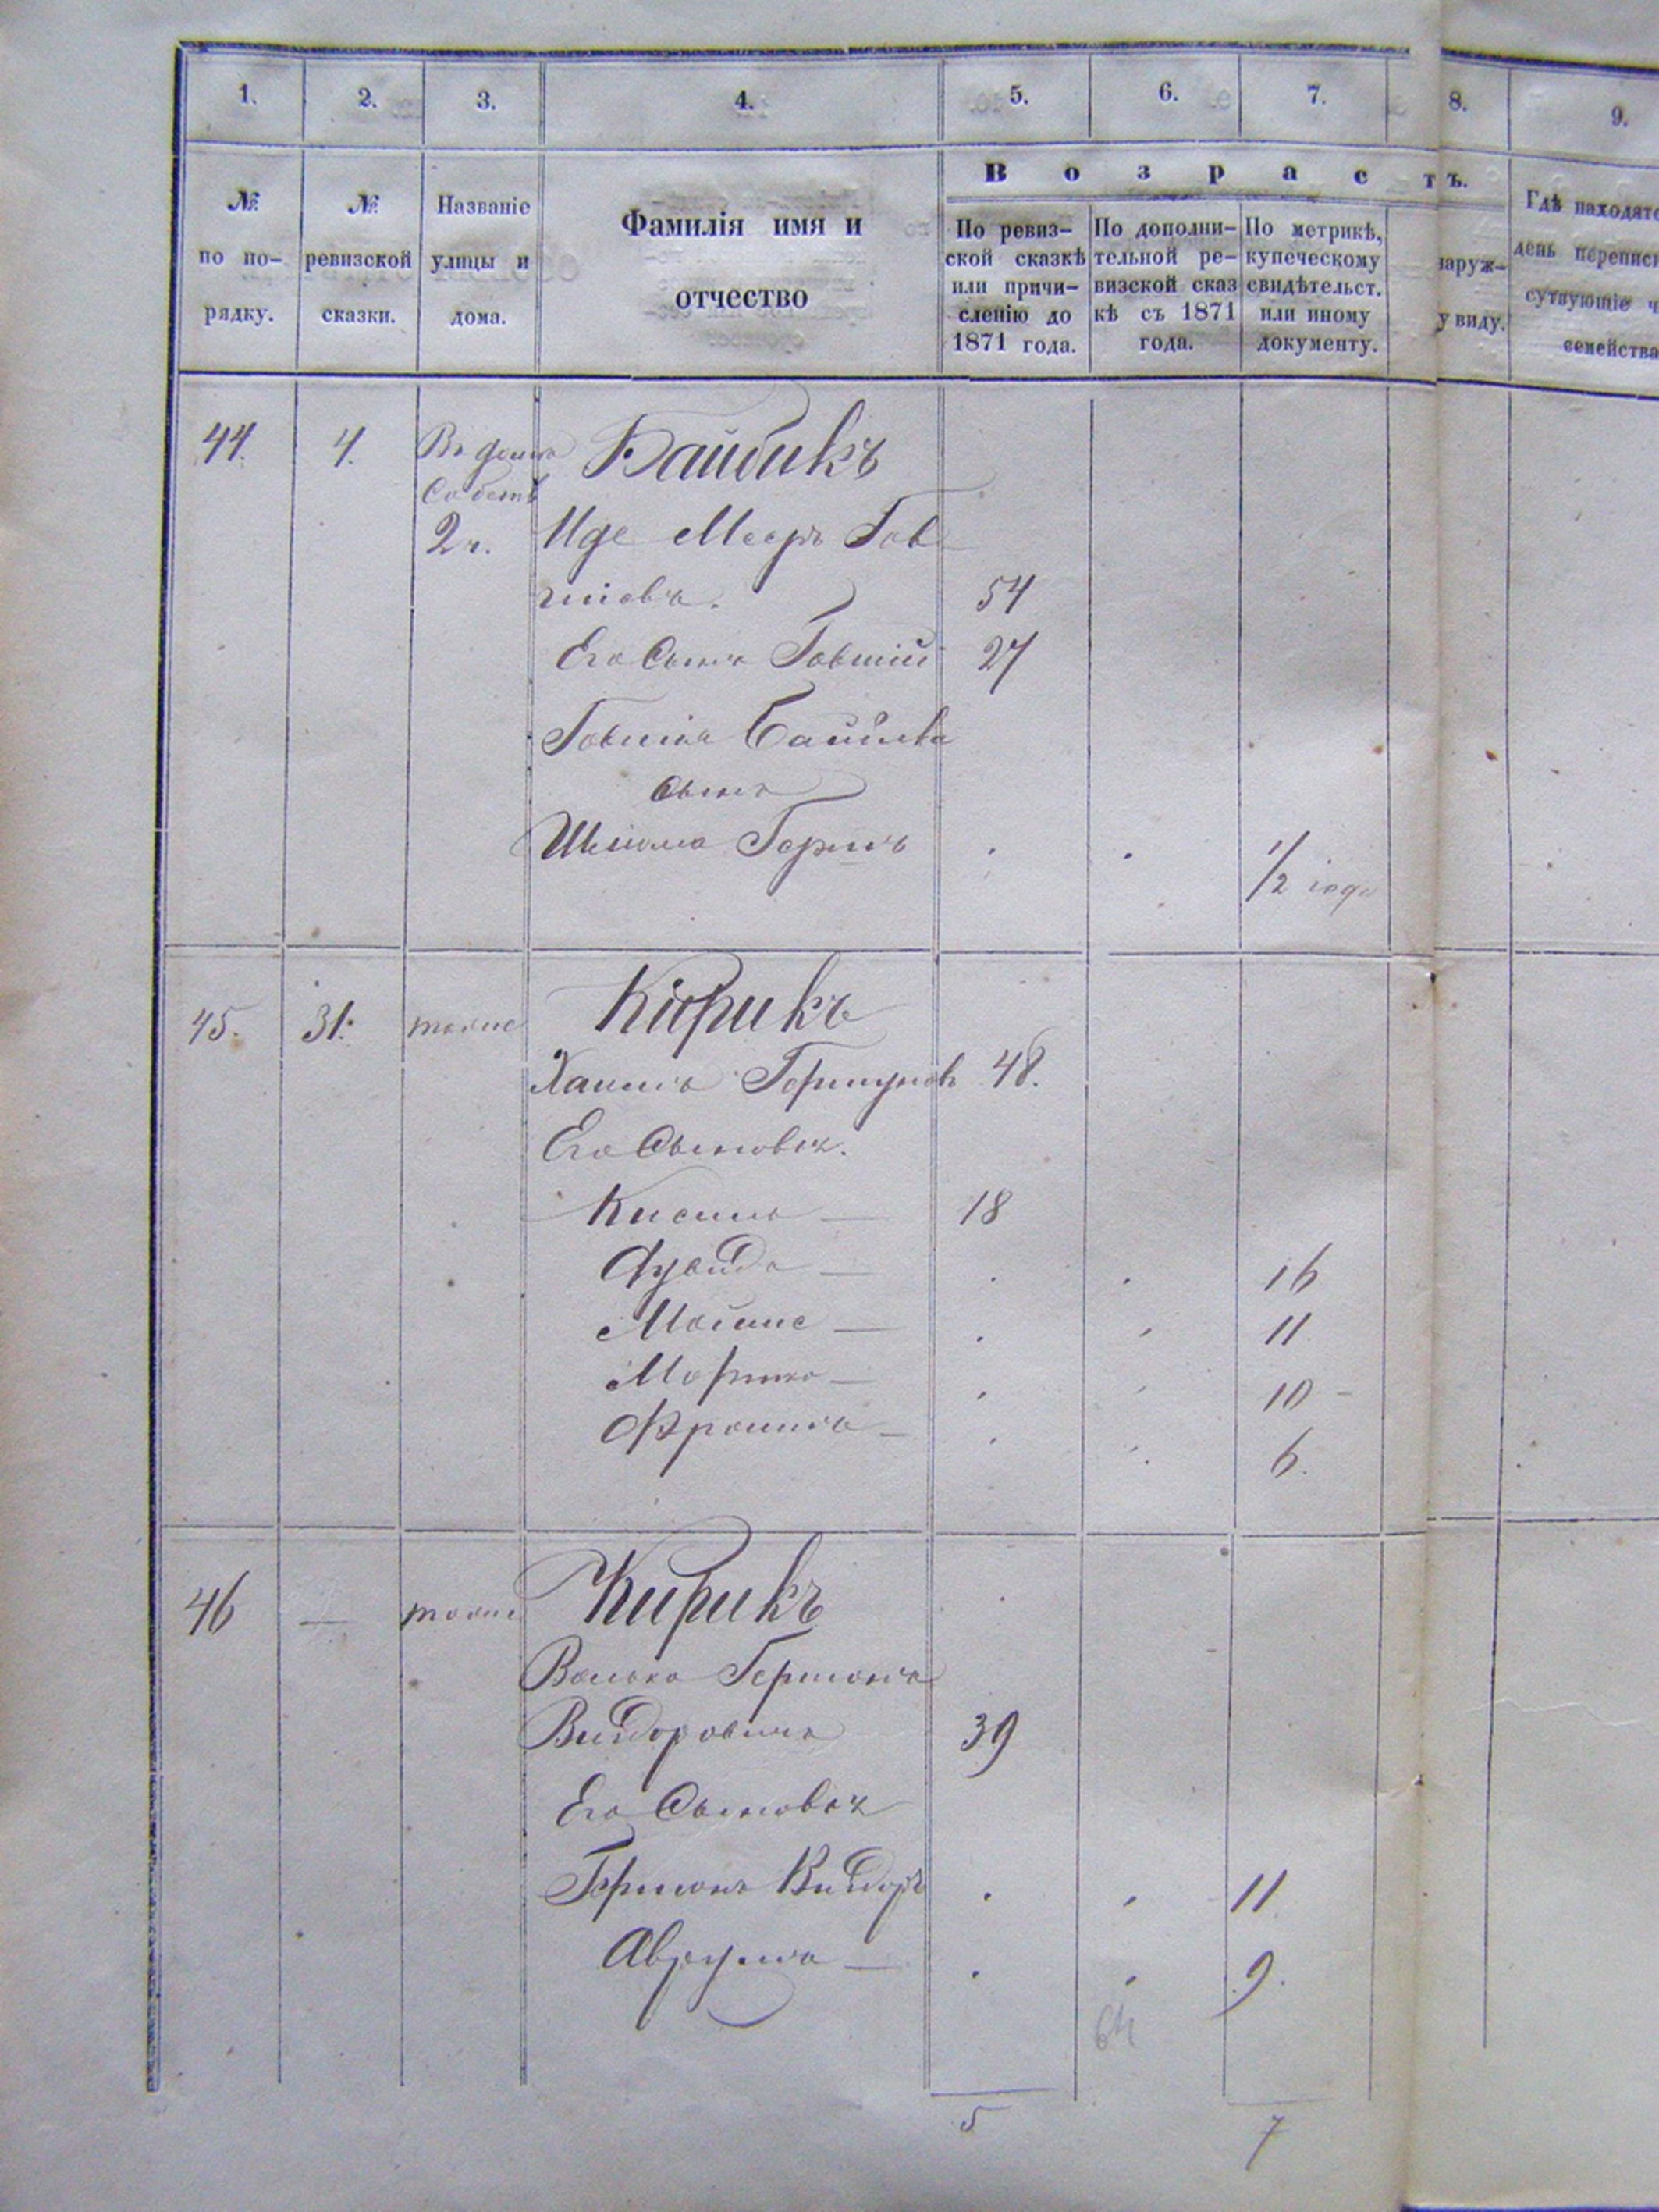 1. 2. 3. 4. 5. 6. 7. 8. 9.
В о з р а с т ъ.
№ по по- рядку.
№ ревизской сказки.
Названіе улицы и дома.
Фамилія имя и отчество
По ревиз- ской сказкѣ или причи- сленію до 1871 года.
По дополни- тельной ре- визской сказ кѣ съ 1871 года.
По метрикѣ, купеческому свидѣтельст. или иному документу.
наруж- у виду.
Гдѣ находятс день переписи сутвующіе ч семейства
44. 4. Байбикъ
2 ч. Иде Мееръ Гов
шіовъ. 54
Его Сынъ Говшій 27
Говшія Байбика
сынъ
Шліома Герш 1/2 года
45. 31. тоже Кирикъ
Хаимъ Гершунов 48.
Его Сыновья.
Кисиль — 18
Дувидъ — 16
Мойше — 11
Мортко — 10 -
Фроимъ — 6.
46 — тоже Кирикъ
Волько Гершонъ
Видоровичъ 39
Его Сыновья
Гершонъ Видоръ 11
Аврумъ — 9.
64
5 7